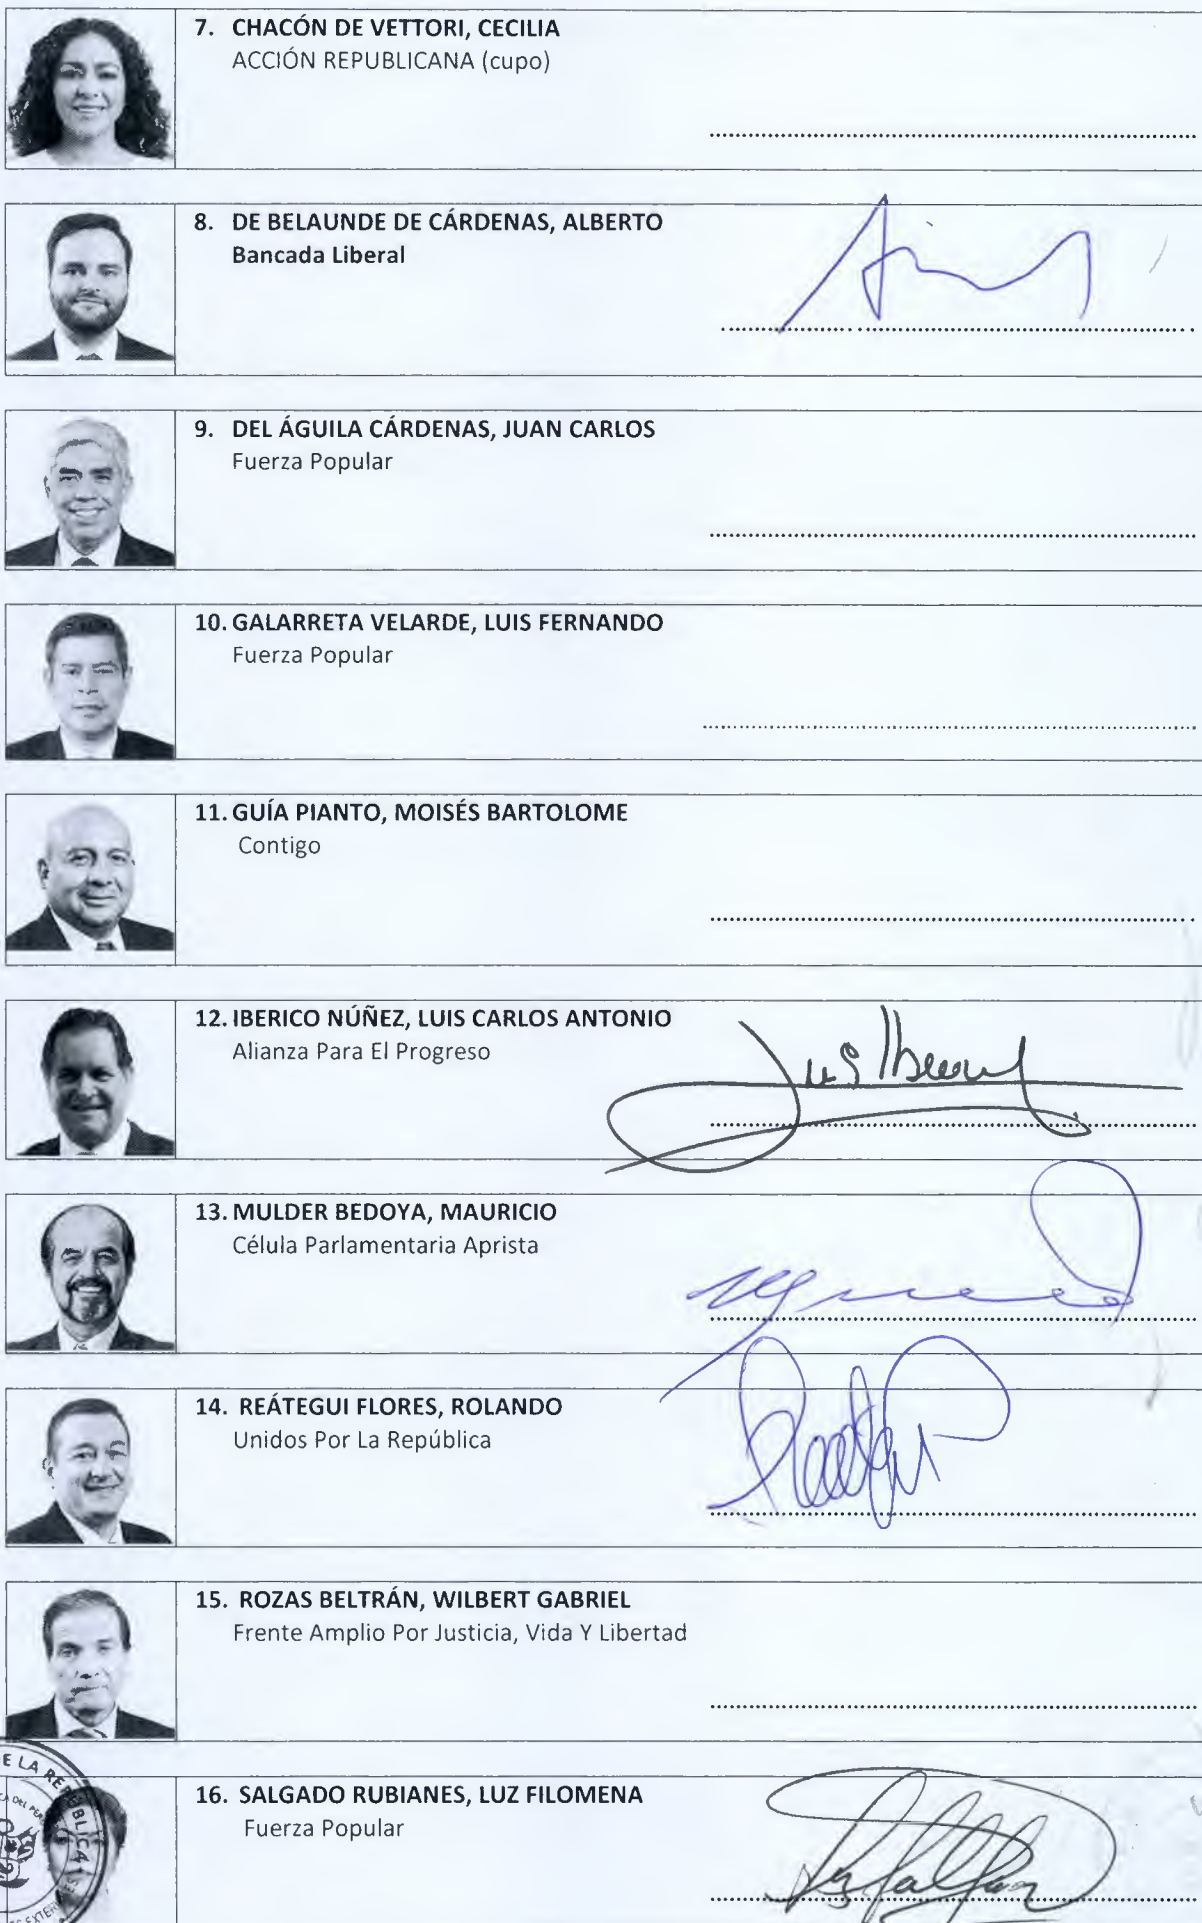 7. CHACÓN DE VETTORI, CECILIA
ACCIÓN REPUBLICANA (cupo)
8. DE BELAUNDE DE CÁRDENAS, ALBERTO
Bancada Liberal
9. DEL ÁGUILA CÁRDENAS, JUAN CARLOS
Fuerza Popular
10. GALARRETA VELARDE, LUIS FERNANDO
Fuerza Popular
11. GUÍA PIANTO, MOISÉS BARTOLOME
Contigo
12. IBERICO NÚÑEZ, LUIS CARLOS ANTONIO
Alianza Para El Progreso
13. MULDER BEDOYA, MAURICIO
Célula Parlamentaria Aprista
14. REÁTEGUI FLORES, ROLANDO
Unidos Por La República
15. ROZAS BELTRÁN, WILBERT GABRIEL
Frente Amplio Por Justicia, Vida Y Libertad
16. SALGADO RUBIANES, LUZ FILOMENA
Fuerza Popular
E LA REPÚBLICA